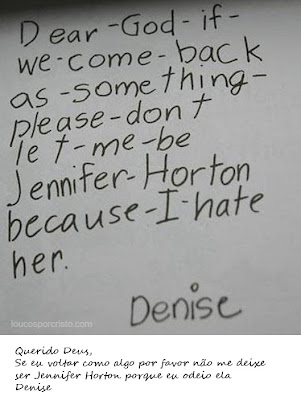 Dear-God-if-
we-come-back
as-something-
please-don't
let-me-be
Jennifer-Horton
because-I-hate
her.
Denise
loucosporcristo.com
Querido Deus,
Se eu voltar como algo por favor não me deixe
ser Jennifer Horton porque eu odeio ela
Denise